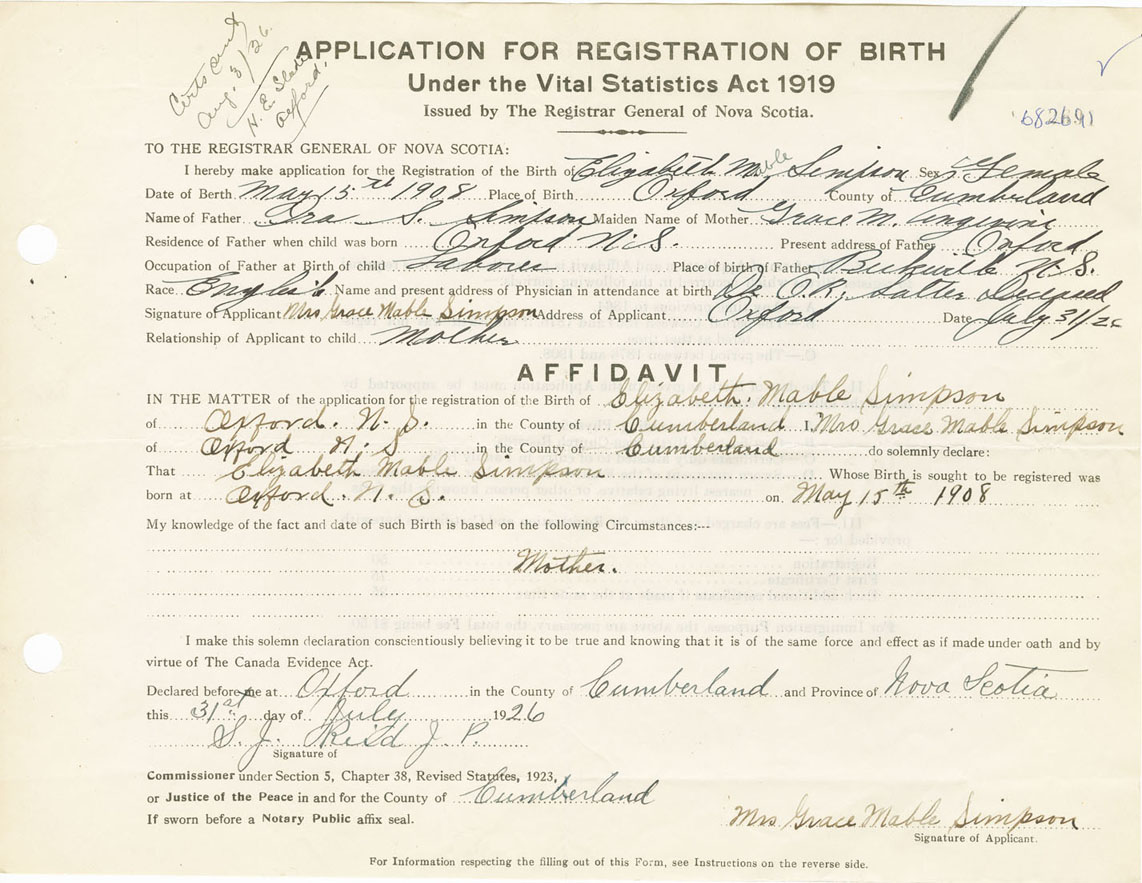 Certs sent
Aug. 3/26.
H. E. Slade
Oxford.
APPLICATION FOR REGISTRATION OF BIRTH
Under the Vital Statistics Act 1919
Issued by The Registrar General of Nova Scotia.
682691
TO THE REGISTRAR GENERAL OF NOVA SCOTIA:
I hereby make application for the Registration of the Birth of Elizabeth Mable Simpson Sex Female
Date of Berth May 15th 1908 Place of Birth Oxford County of Cumberland
Name of Father Ira S. Simpson Maiden Name of Mother Grace M.
Residence of Father when child was born Oxford N.S. Present address of Father Oxford
Occupation of Father at Birth of child Laborer Place of birth of Father N.S.
Race English Name and present address of Physician in attendance at birth Dr C.R. Salter Deceased
Signature of Applicant Mrs Grace Mable Simpson Address of Applicant Oxford Date July 31/26
Relationship of Applicant to child Mother
AFFIDAVIT
IN THE MATTER of the application for the registration of the Birth of Elizabeth. Mable Simpson
of Oxford. N. S. in the County of Cumberland I, Mrs Grace Mable Simpson
of Oxford N. S in the County of Cumberland do solemnly declare:
That Elizabeth Mable Simpson Whose Birth is sought to be registered was
born at Oxford. N. S. on May 15th 1908
My knowledge of the fact and date of such Birth is based on the following Circumstances:---
Mother.
I make this solemn declaration conscientiously believing it to be true and knowing that it is of the same force and effect as if made under oath and by
virtue of The Canada Evidence Act.
Declared before me at Oxford in the County of Cumberland and Province of Nova Scotia
this 31st day of July 1926
S. J. Reid J. P.
Signature of
Commissioner under Section 5, Chapter 38, Revised Statutes, 1923,
or Justice of the Peace in and for the County of Cumberland
If sworn before a Notary Public affix seal.
Mrs Grace Mable Simpson
Signature of Applicant.
For Information respecting the filling out of this Form, see Instructions on the reverse side.